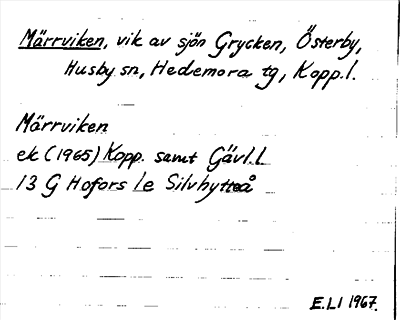 Märrviken, vik av sjön Grycken, Österby,
Husby sn, Hedemora tg, Kopp.l.
Märrviken
ek (1965) Kopp. samt Gävl.L
13 G Hofors 1e Silvhytteå
E.LI 1967.